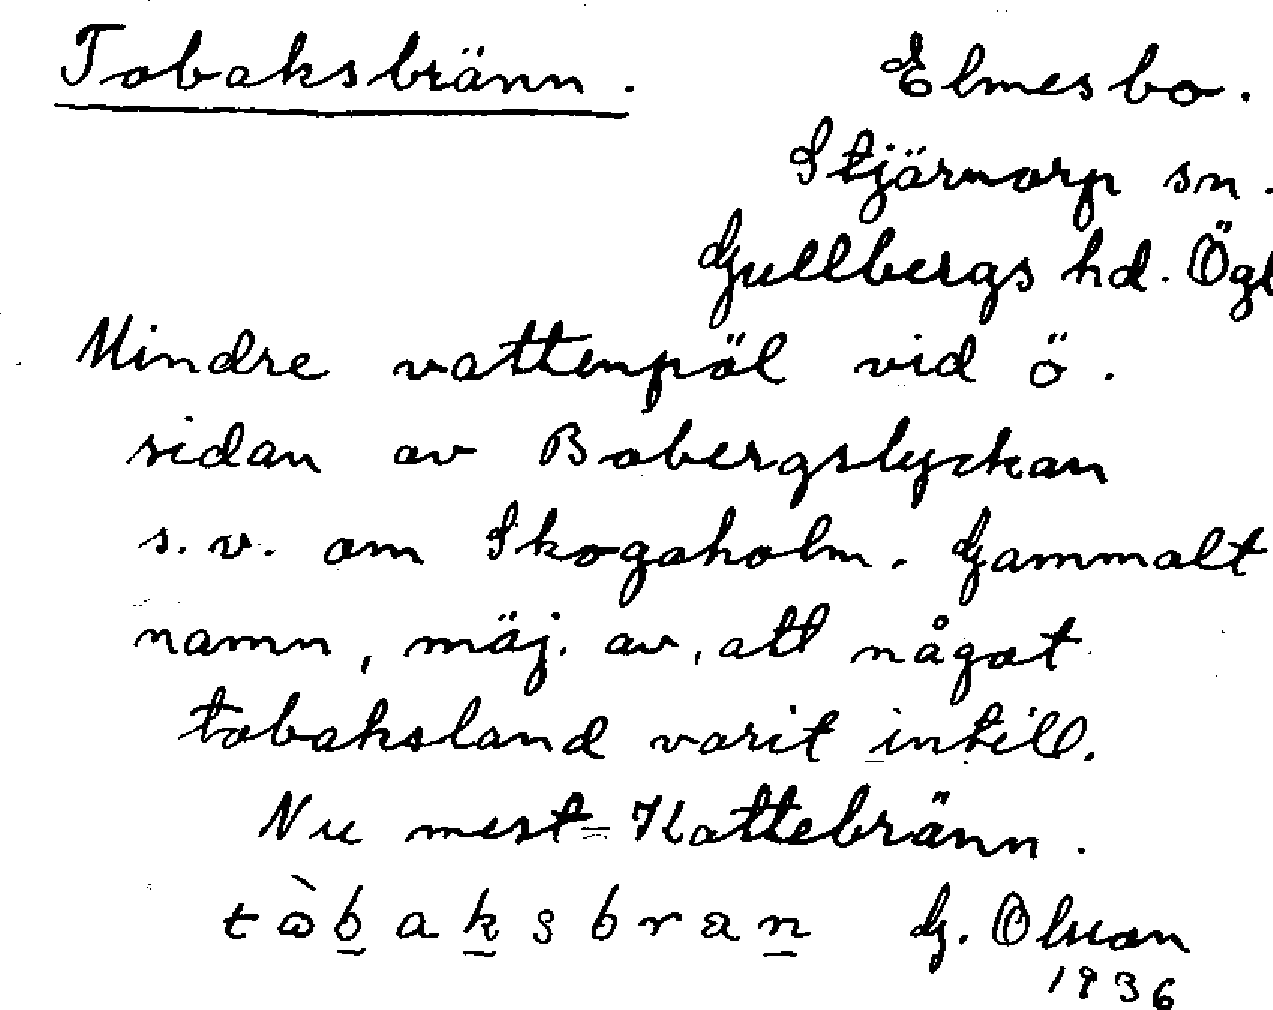 Tobaksbränn. Elmesbo.
Stjärnorp sn.
Gullbergs hd. Ögl
Mindre vattenpöl vid ö.
sidan av Bobergslyckan
s.v. om Skogsholm. Gammalt
namn, möj. av, att något
tobaksland varit intill.
Nu mest = Kattebränn.
tòbaksbran G. Olson
1936